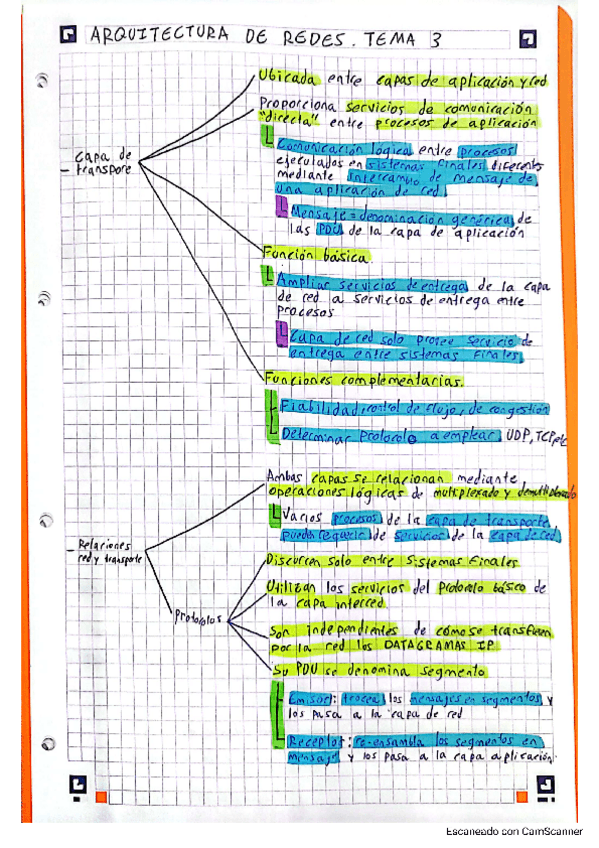 ARQUITECTURA DE REDES. TEMA 3
- Capa de
transpore
Ubicada entre capas de aplicación y red
Proporciona servicios de comunicación
"directa" entre procesos de aplicación
Comunicación lógica entre procesos
ejecutados en sistemas finales diferentes
mediante intercambio de mensaje de
una aplicación de red.
Mensaje = denominación genérica de
las PDU de la capa de aplicación
Función básica.
Ampliar servicios de entrega de la capa
de red a servicios de entrega entre
procesos
Capa de red solo provee servicio de
entrega entre sistemas finales.
Funciones complementarias.
Fiabilidad, control de flujo, de congestión
Determinar protocolo a emplear, UDP, TCP, etc
- Relaciones
red y transporte
Ambas capas se relacionan mediante
operaciones lógicas de multiplexado y demultiplexado
Varios procesos de la capa de transporte
pueden requerir de servicios de la capa de red.
Protocolos
Discurren solo entre sistemas finales
Utilizan los servicios del protocolo básico de
la capa interred
Son independientes de cómo se transfieren
por la red los DATAGRAMAS IP
Su PDU se denomina segmento
Emisor: trocea los mensajes en segmentos y
los pasa a la capa de red
Receptor: re-ensambla los segmentos en
mensaje y los pasa a la capa aplicación.
Escaneado con CamScanner